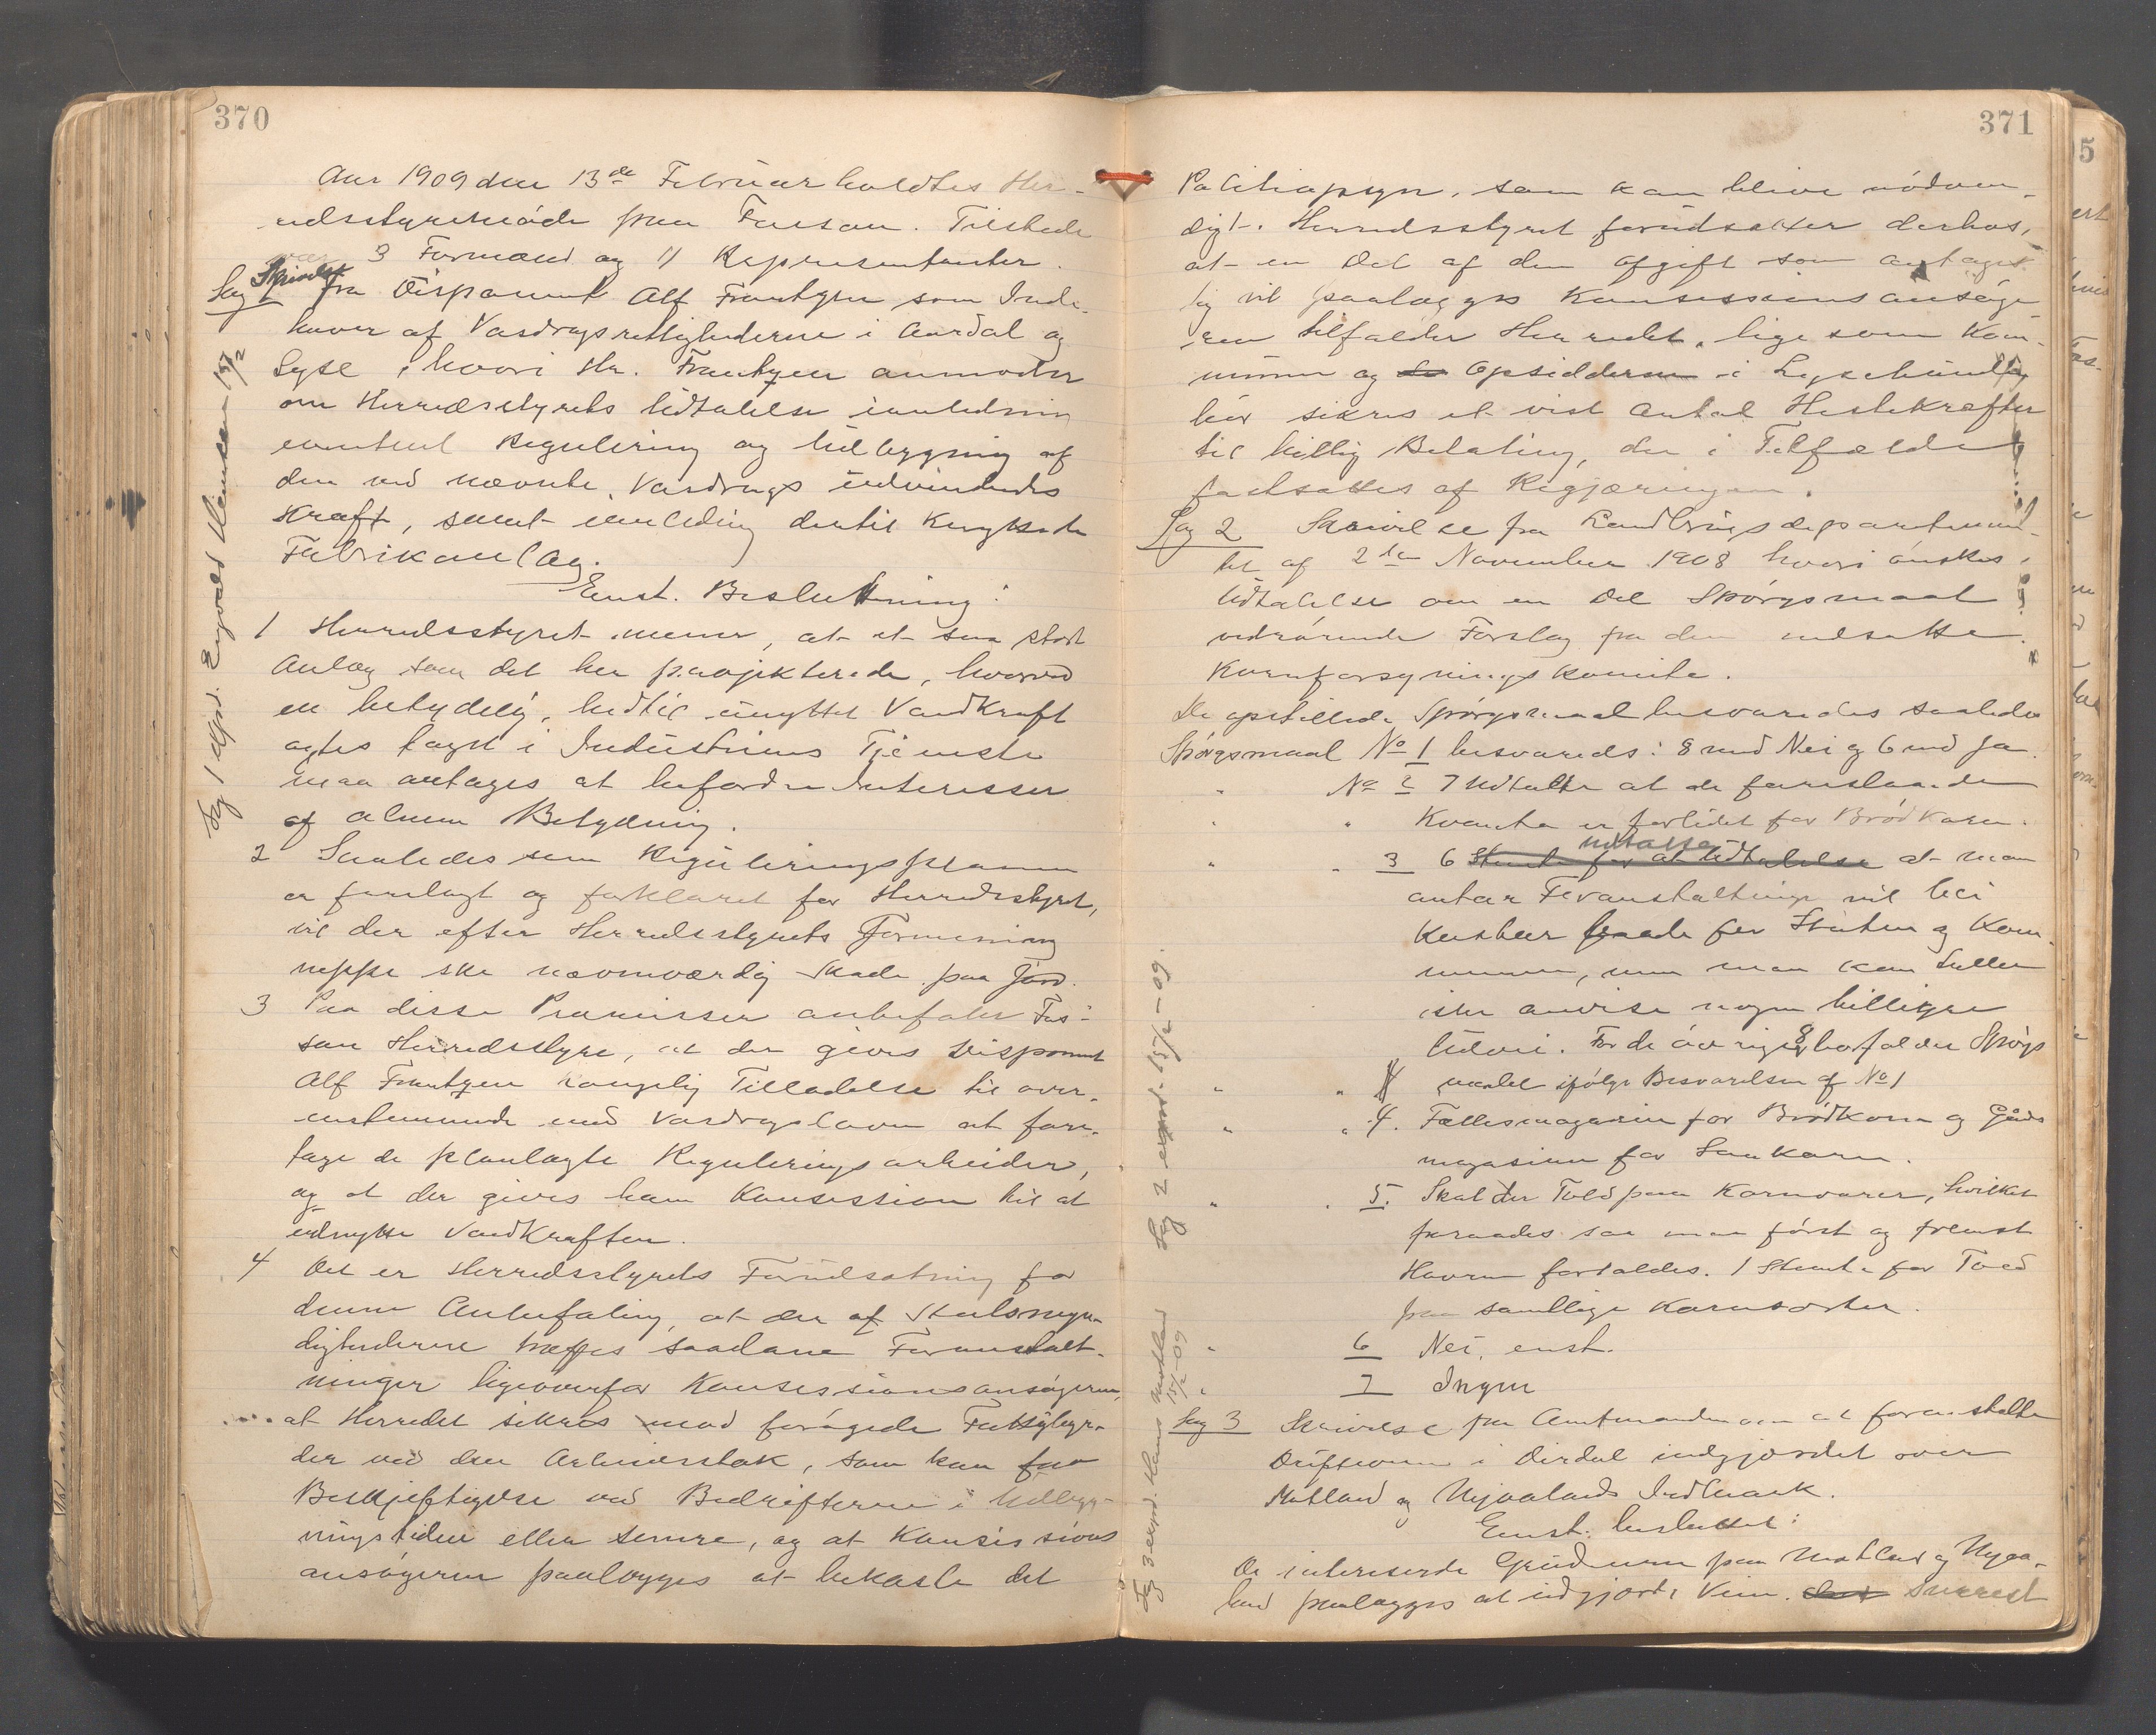 370
Aar 1909 den 13de Februar holdtes Her-
redsstyremøde paa Fossan. Tilstede
var 3 Formænd og 11 Representanter.
Sag 1 Skrivelse fra Disponent Alf Frantzen som Inde-
haver af Vasdragsrettighederne i Aardal og
Lyse, hvori Hr. Frantzen anmoder
om Herredsstyrets Udtalelse i anledning
eventuel Regulering og Udbygning af
den ved nævnte Vasdrags indvindende
Kraft, samt i anledning dertil knyttede
Fabrikanlæg.
Enst. Beslutning:
1 Herredsstyret mener, at et saa stort
Anlæg som det her projekterede, hvorved
en betydelig, hidtil unyttet Vandkraft
agtes tagt i Industriens Tjeneste
maa antages at befordre Interesser
af almen Betydning.
2 Saaledes som Reguleringsplanen
er forelagt og forklaret for Herredsstyret,
vil der efter Herredsstyrets Formening
neppe ske nævneværdig Skade paa Jord.
3 Paa disse Premisser anbefaler Fos-
san Herredsstyre, at der gives Disponent
Alf Frantzen kongelig Tilladelse til over-
enstemmende med Vasdragsloven at fore-
tage de planlagte Reguleringsarbeider,
og at der gives ham Konsession til at
udnytte Vandkraften.
4 Det er Herredsstyrets Forudsætning for
denne Anbefaling, at der af Statsmyn-
dighederne træffes saadane Foranstalt-
ninger ligeoverfor Konsessionsansøgeren,
at Herredet sikres mod forøgede Fattigbyr-
der ved den Arbeiderstok, som kan faa
Beskjeftigelse ved Bedrifterne i Udbyg-
ningstiden eller senere, og at Konsessions
ansøgeren paalægges at bekoste det
Sag 1 expd. Engvald Hansen 15/2
371
Politiopsyn, som kan blive nødven-
digt. Herredsstyret forudsætter derhos,
at en Del af den Afgift som antagelig
vil paalægges Konsessionsansøge-
ren tilfalder Herredet, lige som Kom-
munen og Opsidderne i Lysebunden
bør sikres et vist Antal Hestekræfter
til billig Betaling, der i Tilfælde
fastsættes af Regjæringen.
Sag 2 Skrivelse fra Landbrugsdepartemen-
tet af 2den November 1908 hvori ønskes
Udtalelse om en Del Spørgsmaal
vedrørende Forslag fra den nedsatte
Kornforsyningskomite.
De opstillede Spørgsmaal besvaredes saaledes
Spørgsmaal No 1 besvareds: 8 med Nei og 6 med Ja.
" No 2 7 udtalte at de foreslaaede
" " Kvanta er forlidet for Brødkorn.
" " 3 6 Stemte for at Udtalelse udtalte at man
antar Foranstaltninge vil bli
kostbar baade for Staten og Kom-
munen, men man kan heller
ikke anvise nogen billigere
Udvei. For de øvrige 8 bortfalder Spørgs
" " maalet ifølge Besvarelsen af No 1
" " 4. Fællesmagasin for Brødkorn og Gaards
magasiner for Saakorn.
" " 5. Skal der Told paa Kornvarer, hvilket
fraraades saa maa først og fremst
Havren fortoldes. 1 Stemte for Told
paa samtlige Kornsorter.
" 6 Nei, enst.
" 7 Ingen
Sag 3 Skrivelse fra Amtmanden om at foranstalte
Driftevei i Dirdal udgjordet over
Motland og Nyaalands Indmark.
Enst. besluttet:
De interiserede Grundeiere paa Motland og Nyaa-
land paalægges at udgjorde Veien snarest
Sag 2 expd. 15/2-09.
Sag 3 expd. Hans Motland 15/2-09